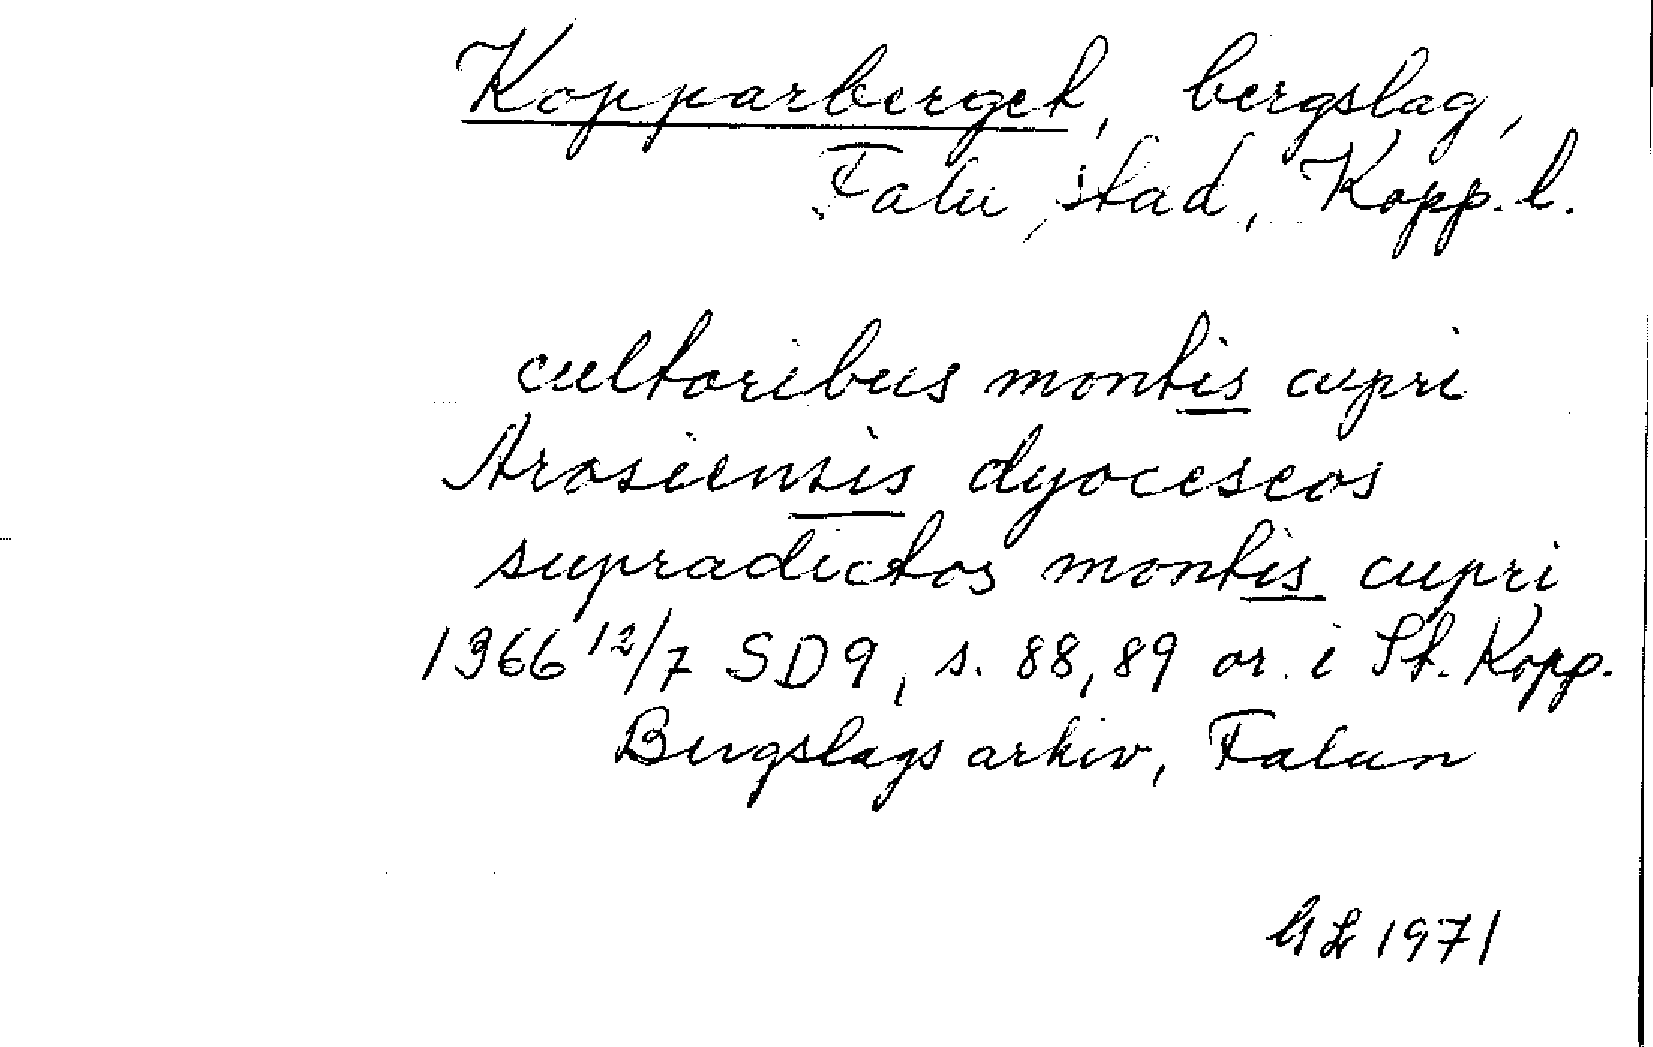 Kopparberget, bergslag,
Falu stad, Kopp. l.
cultoribus montis cupri
Arosiensis dyoceseos
supradictos montis cupri
1366 12/7 SD9, s. 88, 89 or. i St. Kopp.
Bergslags arkiv, Falun
GL 1971